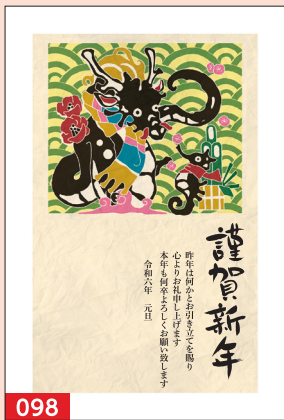 謹賀新年
昨年は何かとお引き立てを賜り
心よりお礼申し上げます
本年も何卒よろしくお願い致します
令和六年　元旦
098